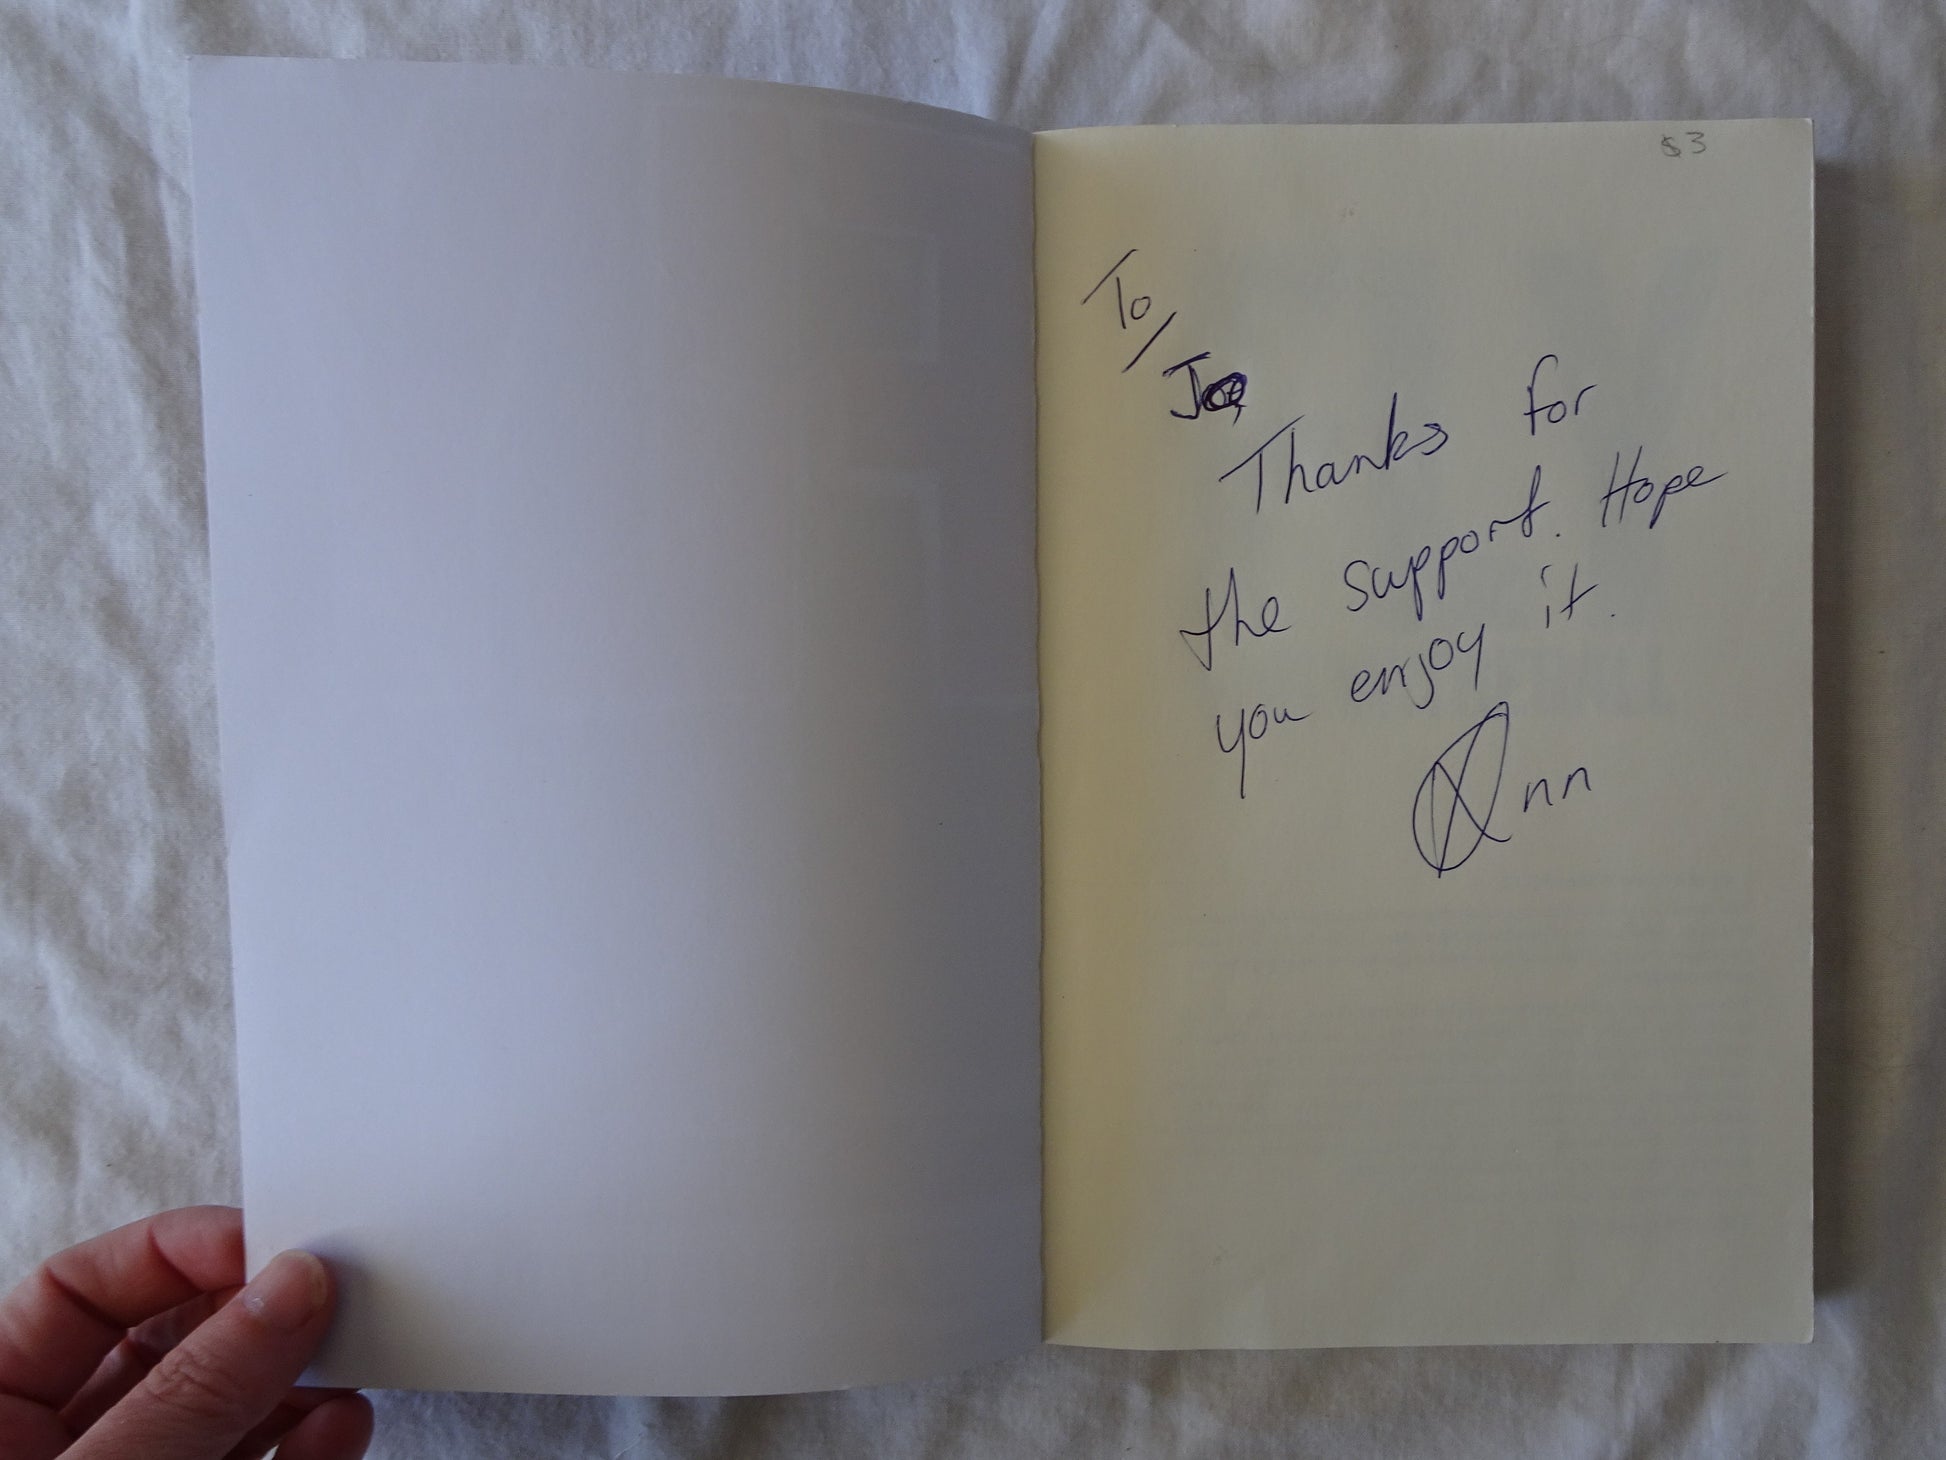 $3
To/
Thanks for
the support. Hope
you enjoy it.
Ann